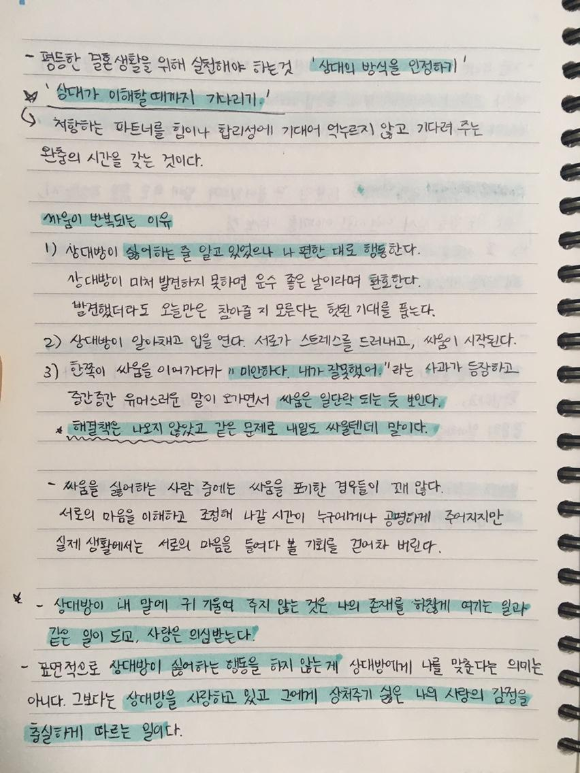 - 평등한 결혼생활을 위해 실천해야 하는것 '상대의 방식을 인정하기'
☆ '상대가 이해할 때까지 기다리기.'
↳ 저항하는 파트너를 힘이나 합리성에 기대어 억누르지 않고 기다려 주는
완충의 시간을 갖는 것이다.
싸움이 반복되는 이유
1) 상대방이 싫어하는 줄 알고 있었으나 나 편한 대로 행동한다.
상대방이 미처 발견하지 못하면 운수 좋은 날이라며 환호한다.
발견했더라도 오늘만은 참아줄 지 모른다는 헛된 기대를 품는다.
2) 상대방이 알아채고 입을 연다. 서로가 스트레스를 드러내고, 싸움이 시작된다.
3) 한쪽이 싸움을 이어가다가 "미안하다. 내가 잘못했어."라는 사과가 등장하고
중간중간 유머스러운 말이 오가면서 싸움은 일단락 되는 듯 보인다.
* 해결책은 나오지 않았고 같은 문제로 내일도 싸울텐데 말이다.
- 싸움을 싫어하는 사람 중에는 싸움을 포기한 경우들이 꽤 많다.
서로의 마음을 이해하고 조정해 나갈 시간이 누구에게나 공평하게 주어지지만
실제 생활에서는 서로의 마음을 들여다 볼 기회를 걷어차 버린다.
* - 상대방이 내 말에 귀 기울여 주지 않는 것은 나의 존재를 하찮게 여기는 일과
같은 일이 되고, 사랑은 의심받는다.
- 표면적으로 상대방이 싫어하는 행동을 하지 않는 게 상대방에게 나를 맞춘다는 의미는
아니다. 그보다는 상대방을 사랑하고 있고 그에게 상처주기 싫은 나의 사랑의 감정을
충실하게 따르는 일이다.